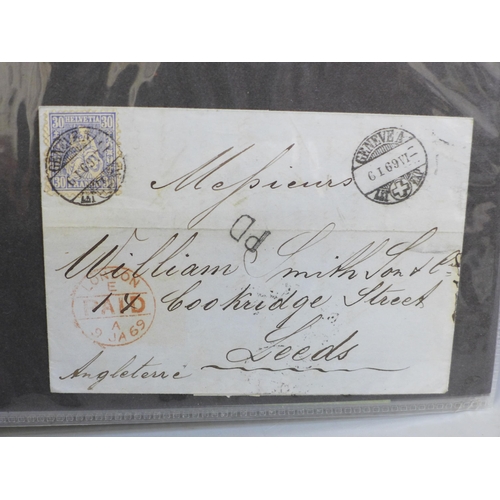 30 HELVETIA 30
GENÈVE
GENÈVE A
6 I 69 VI
Messieurs
PD
William Smith Son & Co
18 Cookridge Street
Leeds
Angleterre
LONDON
E
PAID
A
JA 69